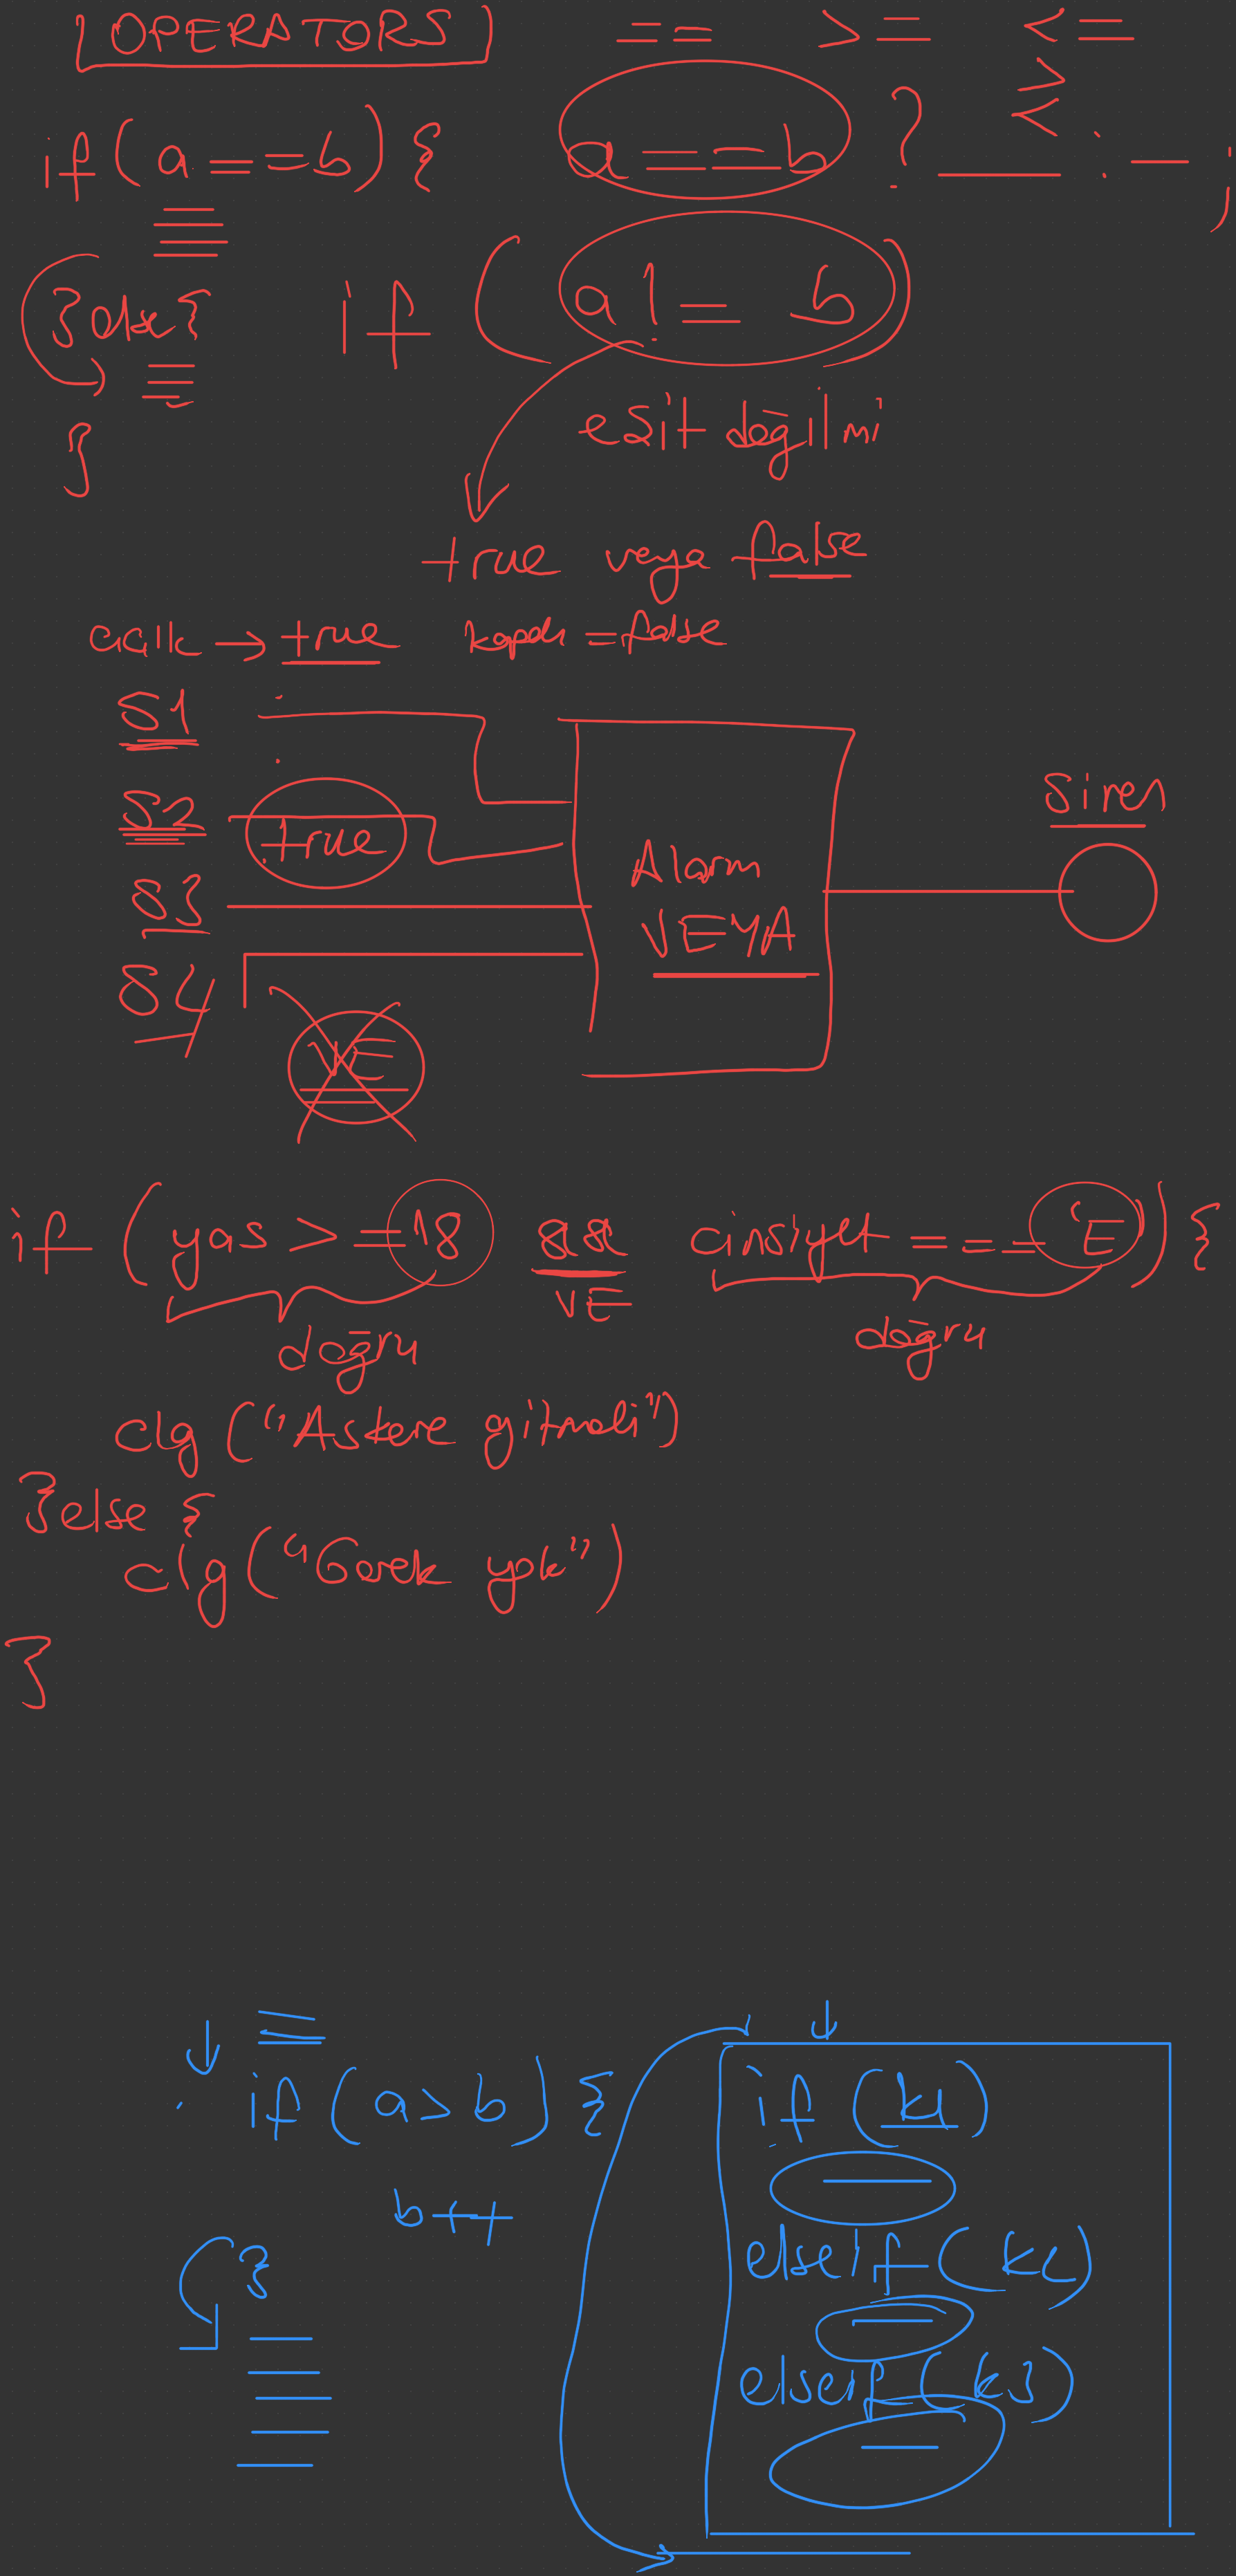 OPERATORS == >= <=
> <
if(a==b){ a==b ? __ : __ ;
}else{ if (a!= b)
}
esit değilmi
true veya false
acık → true kapalı = false
S1
S2 true
S3
S4
Alarm
VEYA
Siren
VE
if (yas >=18 && cinsiyet === 'E'){
VE
doğru doğru
clg ("Askere gitmeli")
}else {
clg ("Gerek yok")
}
if(a>b){
b++
}
if (k1)
else if (k2)
else if (k3)